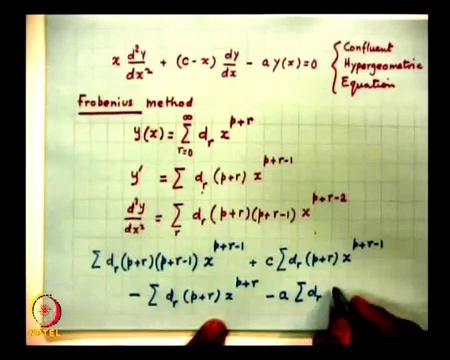 x d²y/dx² + (c-x) dy/dx - a y(x)=0 { Confluent
Hypergeometric
Equation
Frobenius method
y(x) = ∑_{r=0}^{∞} d_r x^{p+r}
y' = ∑ d_r (p+r) x^{p+r-1}
d²y/dx² = ∑_r d_r (p+r)(p+r-1) x^{p+r-2}
∑ d_r (p+r)(p+r-1) x^{p+r-1} + c ∑ d_r (p+r) x^{p+r-1}
- ∑ d_r (p+r) x^{p+r} - a ∑ d_r
NPTEL